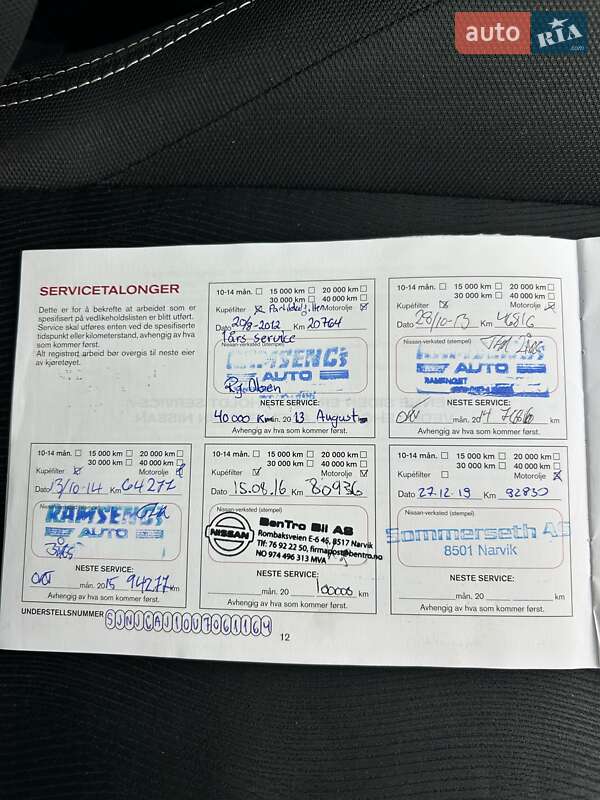 auto RIA .com
SERVICETALONGER
Dette er for å bekrefte at arbeidet som er
spesifisert på vedlikeholdslisten er blitt utført.
Service skal utføres enten ved de spesifiserte
tidspunkt eller kilometerstand, avhengig av hva
som kommer først.
Alt registrert arbeid bør overgis til neste eier
av kjøretøyet.
10-14 mån. 15 000 km 20 000 km
30 000 km 40 000 km
Kupéfilter Motorolje
Dato 20/8-2012 Km 20764
1 års service
Nissan-verksted (stempel)
RAMSENG's
AUTO
Rg. Olsen
NESTE SERVICE:
40 000 Km mån. 20 13 August
Avhengig av hva som kommer først.
10-14 mån. 15 000 km 20 000 km
30 000 km 40 000 km
Kupéfilter Motorolje
Dato 28/10-13 Km
Nissan-verksted (stempel)
RAMSENG's
AUTO
NESTE SERVICE:
mån. 20 14 km
Avhengig av hva som kommer først.
10-14 mån. 15 000 km 20 000 km
30 000 km 40 000 km
Kupéfilter Motorolje
Dato 13/10-14 Km 64277
Nissan-verksted (stempel)
RAMSENG's
AUTO
NESTE SERVICE:
mån. 20 15 94277 km
Avhengig av hva som kommer først.
10-14 mån. 15 000 km 20 000 km
30 000 km 40 000 km
Kupéfilter Motorolje
Dato 15.08.16 Km 80936
Nissan-verksted (stempel)
NISSAN
BenTro Bil AS
Rombaksveien E-6 46, 8517 Narvik
Tlf: 76 92 22 50, firmapost@bentro.no
NO 974 496 313 MVA
NESTE SERVICE:
mån. 20 100000 km
Avhengig av hva som kommer først.
10-14 mån. 15 000 km 20 000 km
30 000 km 40 000 km
Kupéfilter Motorolje
Dato 27.12.19 Km 92830
Nissan-verksted (stempel)
Sommerseth AS
8501 Narvik
NESTE SERVICE:
mån. 20 km
Avhengig av hva som kommer først.
UNDERSTELLSNUMMER SJNJCAJ10U7061164
12